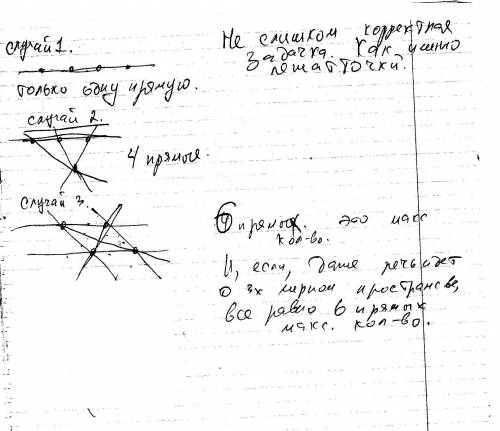 случай 1.
только одну прямую.
случай 2.
4 прямые.
случай 3.
Не слишком корректная
задачка. Как именно
лежат точки?
6 прямых. это макс
кол-во.
И, если, даже речь идет
о 3х мерном пространстве,
все равно 6 прямых
макс. кол-во.